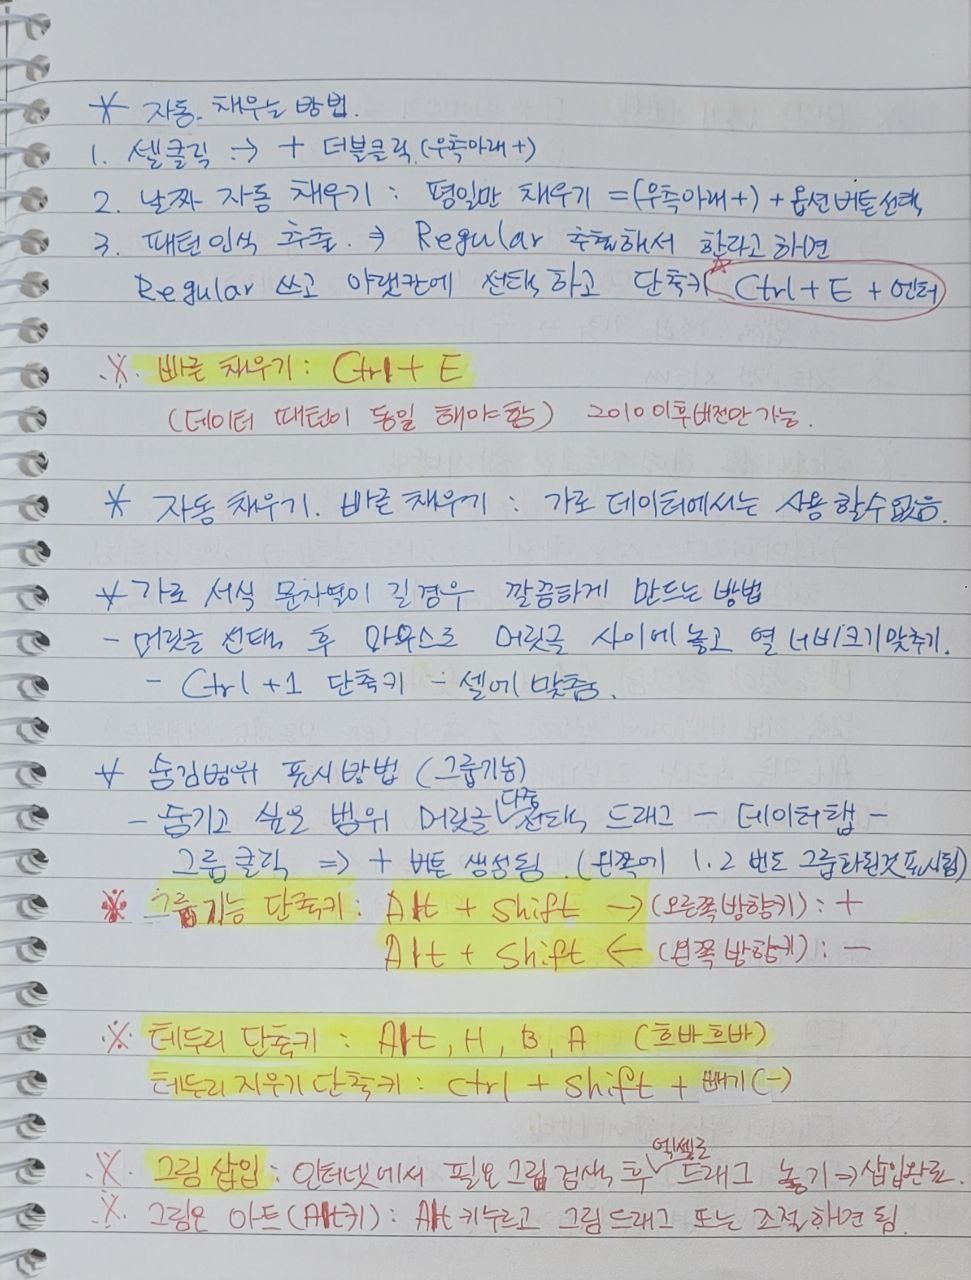 * 자동 채우는 방법.
1. 셀클릭 :→ + 더블클릭.(우측아래+)
2. 날짜 자동 채우기 : 평일만 채우기 =(우측아래+) + 옵션버튼선택
3. 패턴인식 추출. → Regular 추출해서 한라고하면
Regular 쓰고 아랫칸에 선택하고 단축키 Ctrl + E + 엔터
※. 빠른 채우기 : Ctrl + E
(데이터 패턴이 동일 해야함) 2010이후버전만가능.
* 자동채우기. 빠른채우기 : 가로데이터에서는 사용할수없음.
* 가로 서식 문자열이 길경우 깔끔하게 만드는방법
- 머릿글 선택 후 마우스로 머릿글 사이에놓고 열너비크기맞추기.
- Ctrl+1 단축키 - 셀에맞춤.
* 숨김범위 표시방법 (그룹기능)
- 숨기고 싶은 범위 머릿글 다중 선택 드래그 - 데이터탭 -
그룹클릭 => + 버튼생성됨. (왼쪽에 1.2 번도 그룹화된것표시됨)
※ 그룹기능 단축키 : Alt + Shift → (오른쪽방향키) : +
Alt + Shift ← (왼쪽방향키) : -
※. 테두리 단축키 : Alt, H, B, A (흐바흐바)
테두리지우기단축키 : Ctrl + Shift + 빼기(-)
※. 그림삽입 : 인터넷에서 필요그림검색 후 엑셀로 드래그 놓기→삽입완료.
※. 그림은 아트(Alt키) : Alt키누르고 그림드래그 또는 조절하면 됨.